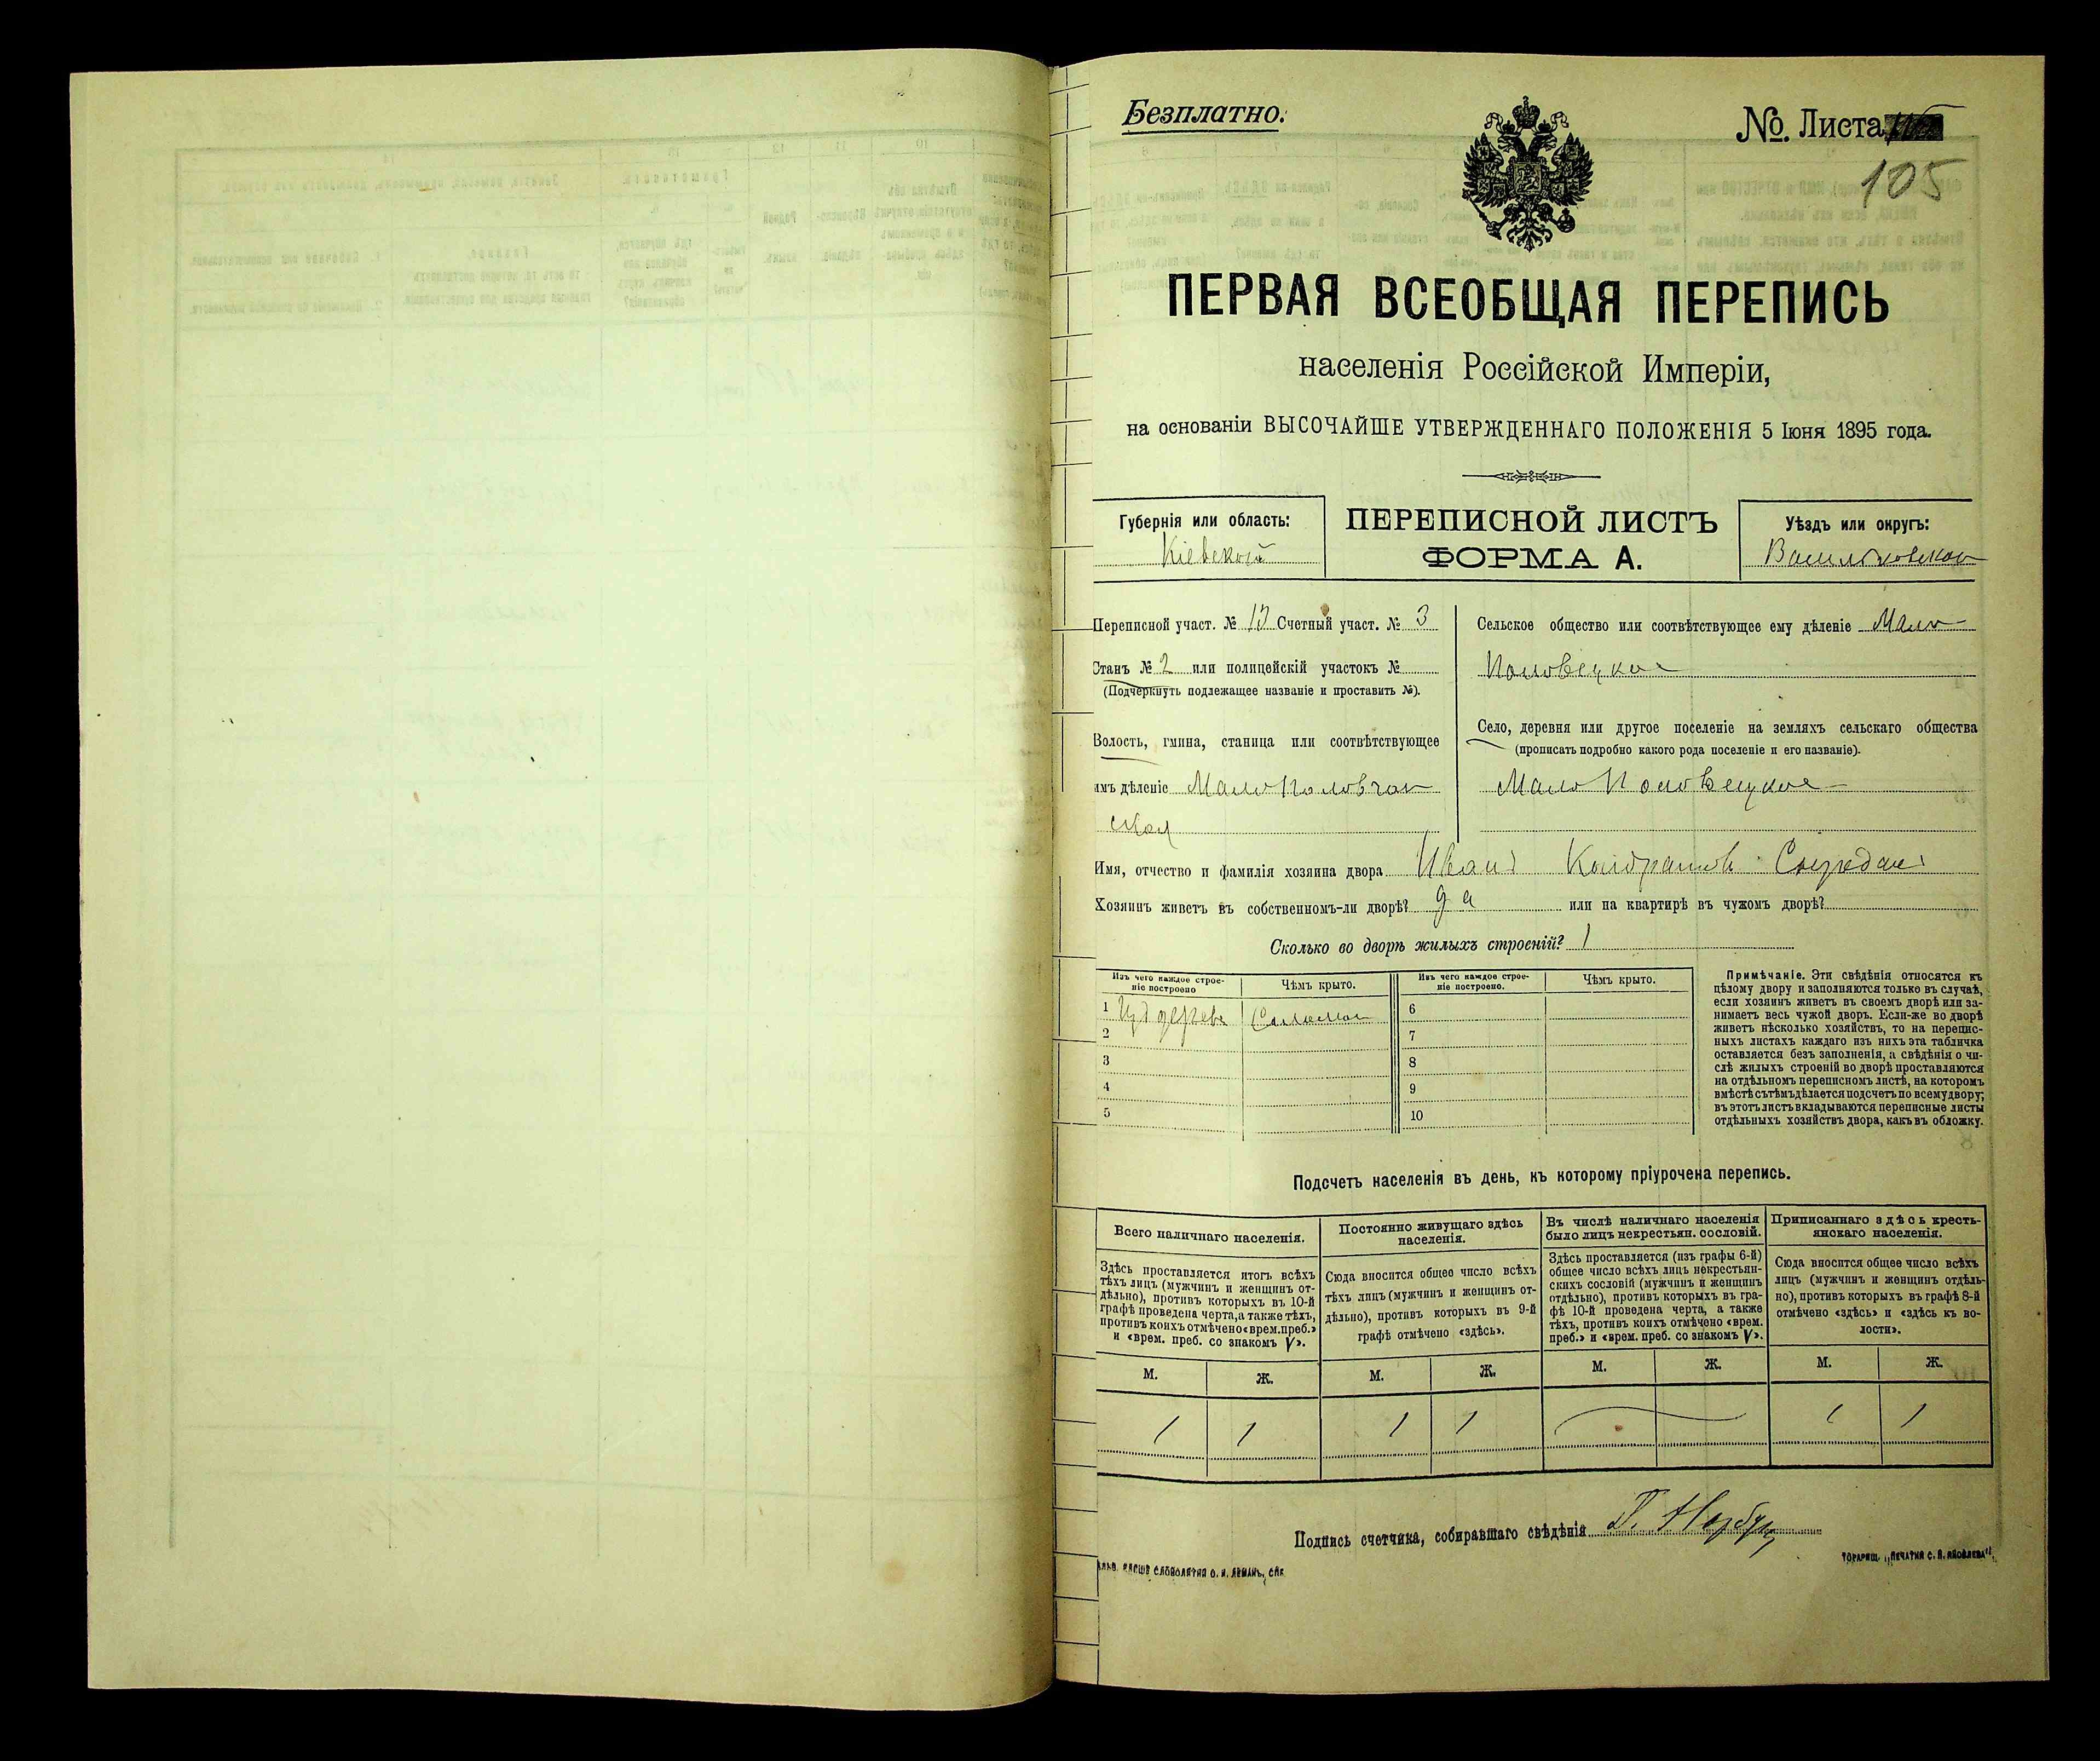 Безплатно.
№. Листа
105
ПЕРВАЯ ВСЕОБЩАЯ ПЕРЕПИСЬ
населенія Россійской Имперіи,
на основаніи ВЫСОЧАЙШЕ УТВЕРЖДЕННАГО ПОЛОЖЕНІЯ 5 Іюня 1895 года.
Губернія или область:
Кіевской
ПЕРЕПИСНОЙ ЛИСТЪ
ФОРМА А.
Уѣздъ или округъ:
Васильковскаго
Переписной участ. № 13 Счетный участ. № 3
Станъ № 2 или полицейскій участокъ №
(Подчеркнуть подлежащее названіе и проставить №).
Волость, гмина, станица или соотвѣтствующее
имъ дѣленіе МалоПоловчан
ская
Сельское общество или соотвѣтствующее ему дѣленіе Мало
Половецкое
Село, деревня или другое поселеніе на земляхъ сельскаго общества
(прописать подробно какого рода поселеніе и его названіе).
МалоПоловецкое
Имя, отчество и фамилія хозяина двора Иванъ Кондратов
Хозяинъ живетъ въ собственномъ-ли дворѣ? да или на квартирѣ въ чужомъ дворѣ?
Сколько во дворѣ жилыхъ строеній? 1
Изъ чего каждое строе-
ніе построено
Чѣмъ крыто.
Изъ чего каждое строе-
ніе построено.
Чѣмъ крыто.
1 Изъ дерева Соломой
2
3
4
5
6
7
8
9
10
Примѣчаніе. Эти свѣдѣнія относятся къ
цѣлому двору и заполняются только въ случаѣ,
если хозяинъ живетъ въ своемъ дворѣ или за-
нимаетъ весь чужой дворъ. Если-же во дворѣ
живетъ нѣсколько хозяйствъ, то на перепис-
ныхъ листахъ каждаго изъ нихъ эта табличка
оставляется безъ заполненія, а свѣдѣнія о чи-
слѣ жилыхъ строеній во дворѣ проставляются
на отдѣльномъ переписномъ листѣ, на которомъ
вмѣстѣ съ тѣмъ дѣлается подсчетъ по всему двору;
въ этотъ листъ вкладываются переписные листы
отдѣльныхъ хозяйствъ двора, какъ въ обложку.
Подсчетъ населенія въ день, къ которому пріурочена перепись.
Всего наличнаго населенія.
Здѣсь проставляется итогъ всѣхъ
тѣхъ лицъ (мужчинъ и женщинъ от-
дѣльно), противъ которыхъ въ 10-й
графѣ проведена черта, а также тѣхъ,
противъ коихъ отмѣчено «врем. преб.»
и «врем. преб. со знакомъ V».
Постоянно живущаго здѣсь
населенія.
Сюда вносится общее число всѣхъ
тѣхъ лицъ (мужчинъ и женщинъ от-
дѣльно), противъ которыхъ въ 9-й
графѣ отмѣчено «здѣсь».
Въ числѣ наличнаго населенія
было лицъ некрестьян. сословій.
Здѣсь проставляется (изъ графы 6-й)
общее число всѣхъ лицъ некрестьян-
скихъ сословій (мужчинъ и женщинъ
отдѣльно), противъ которыхъ въ гра-
фѣ 10-й проведена черта, а также
тѣхъ, противъ коихъ отмѣчено «врем.
преб.» и «врем. преб. со знакомъ V».
Приписаннаго здѣсь кресть-
янскаго населенія.
Сюда вносится общее число всѣхъ
лицъ (мужчинъ и женщинъ отдѣль-
но), противъ которыхъ въ графѣ 8-й
отмѣчено «здѣсь» и «здѣсь къ во-
лости».
М. Ж. М. Ж. М. Ж. М. Ж.
1 1 1 1 1 1
Подпись счетчика, собиравшаго свѣдѣнія